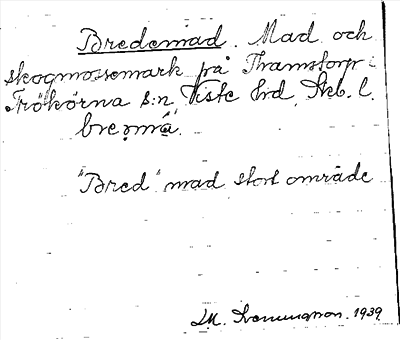 Bredemad. Mad och
skogmossemark på Thamstorp i
Trökörna s:n, Viste hrd, Skb. l.
bre̥má̄.
"Bred" mad stort område
1939